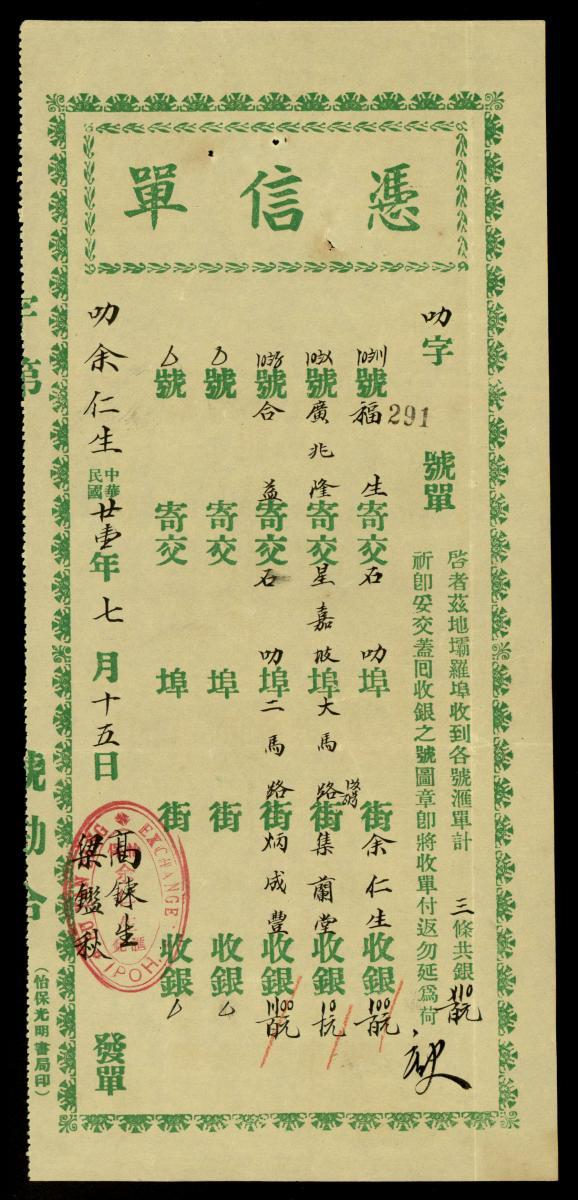 憑信單
叻字 291 號單
啓者茲地壩羅埠收到各號滙單計 三 條共銀
祈卽妥交蓋回收銀之號圖章卽將收單付返勿延爲荷
號 福生 寄交 石叻 埠 街 余仁生 收銀 100 百元
號 廣兆隆 寄交 星嘉坡 埠 大馬路 街 集蘭堂 收銀 10 十元
號 合益 寄交 石叻 埠 二馬路 街 炳成豐 收銀 百元
號 寄交 埠 街 收銀
號 寄交 埠 街 收銀
叻余仁生 中華民國 廿壹 年 七 月 十五 日
高鍊生
梁鑑秋
發單
EXCHANGE
IPOH
字第 號勘合
（怡保光明書局印）